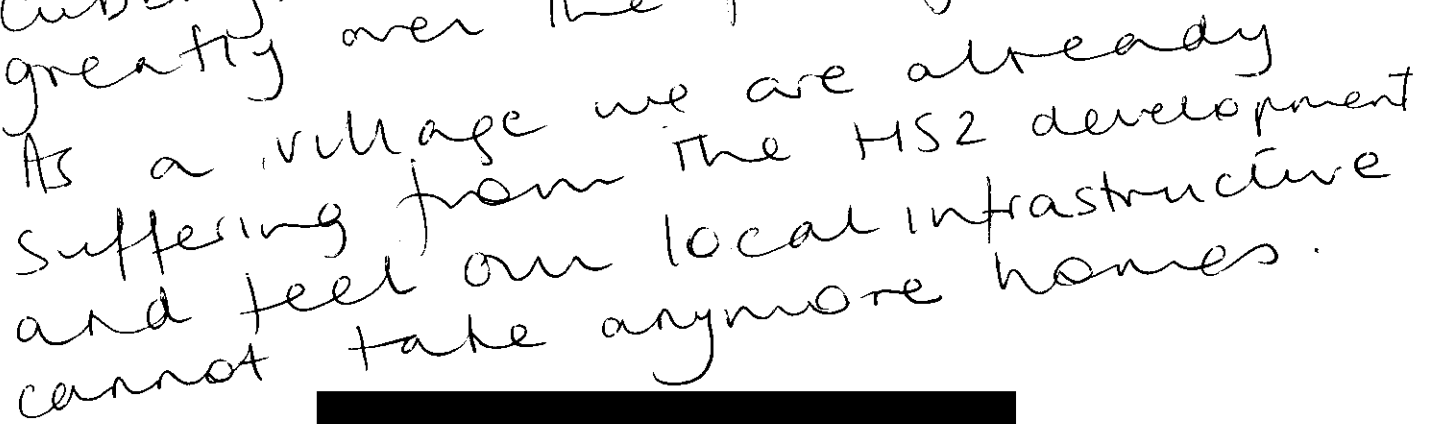 greatly over the
As a village we are already
suffering from the HS2 development
and feel our local infrastructure
cannot take anymore homes.